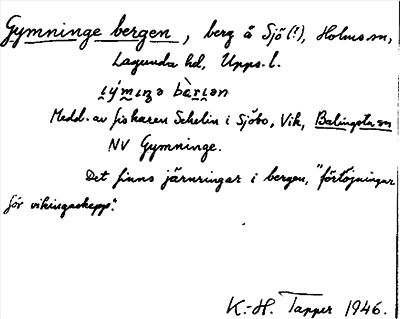 Gymninge bergen, berg å Sjö(!), Holms sn,
Lagunda hd, Upps. l.
Medd. av fiskaren Schelin i Sjöbo, Vik, Balingsta sn
NV Gymninge.
Det finns järnringar i bergen, "förtöjningar
för vikingaskepp".
K.-H. Tapper 1946.